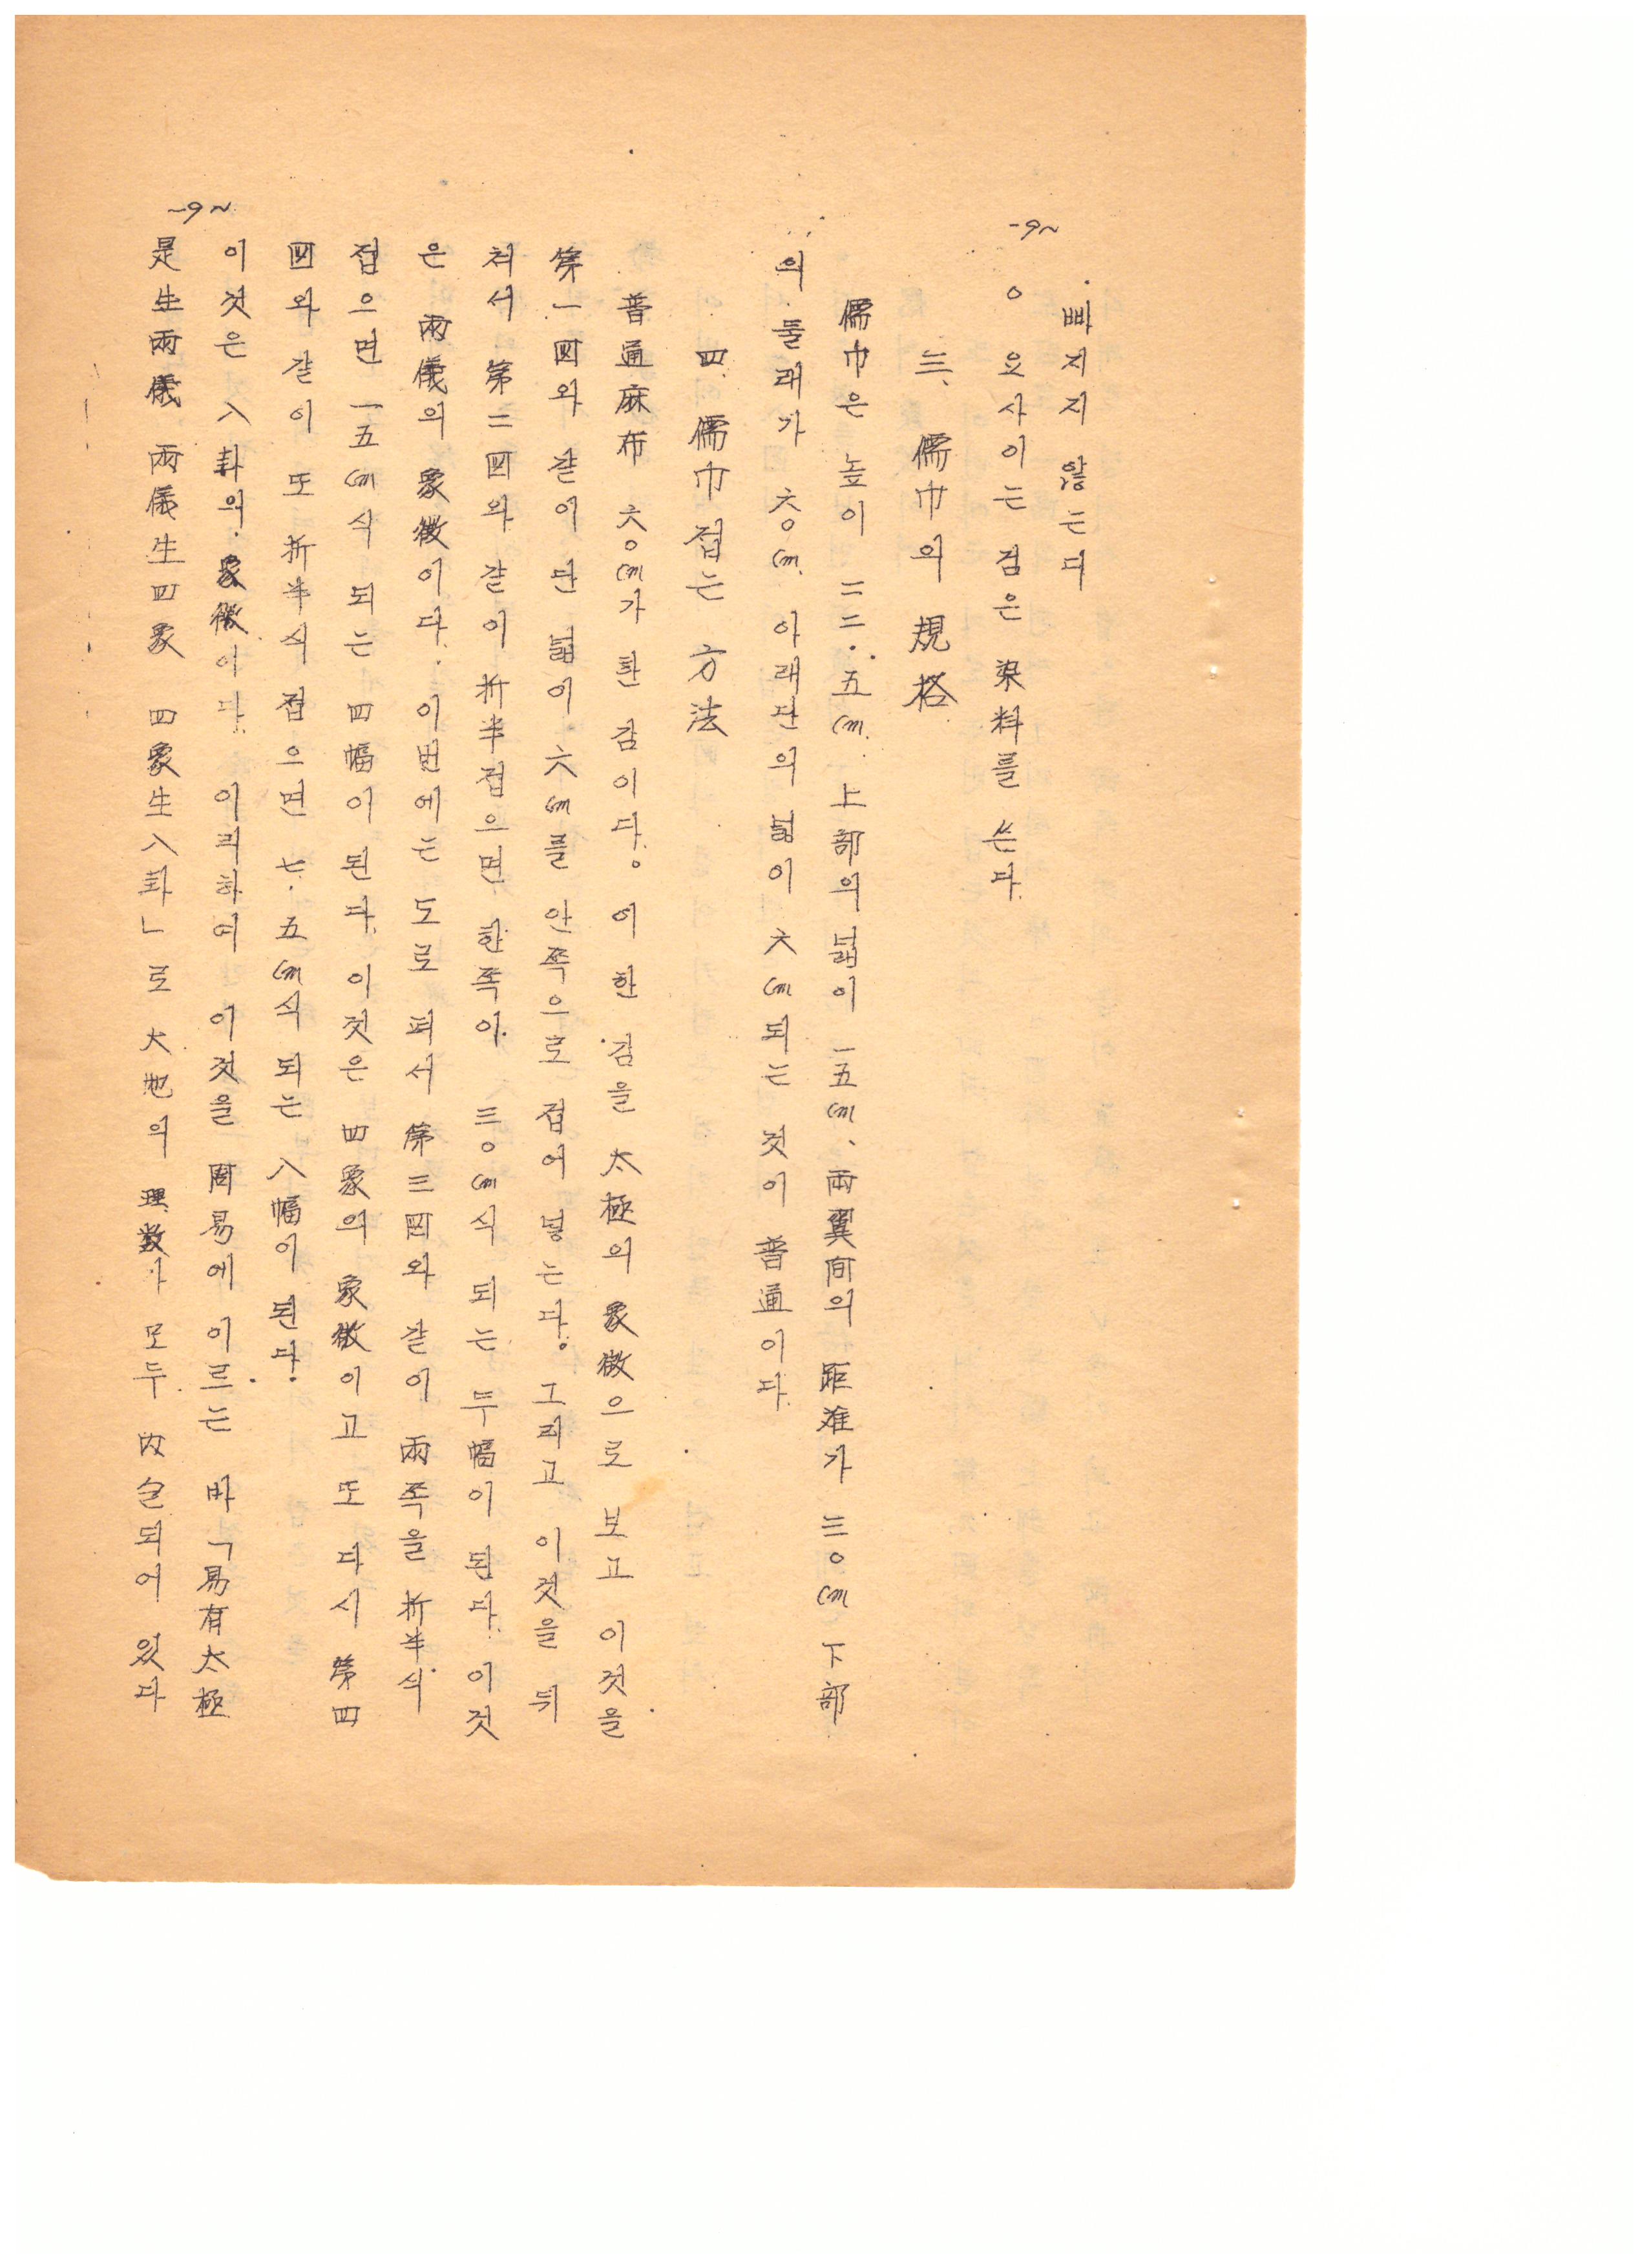 -9~
빠지지 않는다
○ 요사이는 검은 染料를 쓴다.
三、 儒巾의 規格
儒巾은 높이 二二.五cm. 上部의 넓이 一五cm、 兩翼间의 距離가 三○cm 下部
의 둘래가 六○cm. 아래단의 넓이 六cm되는 것이 普通이다.
四、 儒巾 접는 方法
普通麻布 六○cm가 한 감이다。 이 한 감을 太極의 象徵으로 보고 이것을
第一図와 같이 단 넓이 六cm를 안쪽으로 접어 넣는다。 그리고 이것을 뒤
처서 第二図와 같이 折半접으면 한쪽이 三○cm식 되는 두幅이 된다. 이것
은 兩儀의 象徵이다. 이번에는 도로 펴서 第三図와 같이 兩쪽을 折半식
접으면 一五cm식 되는 四幅이 된다. 이것은 四象의 象徵이고 또 다시 第四
図와 같이 또 折半식 접으면 七.五cm식 되는 八幅이 된다.
이것은 八卦의 象徵이다. 이리하여 이것을 周易에 이르는 바 「易有太極
是生兩儀 兩儀生四象 四象生八卦」로 大地의 理数가 모두 內包되어 있다
-9~